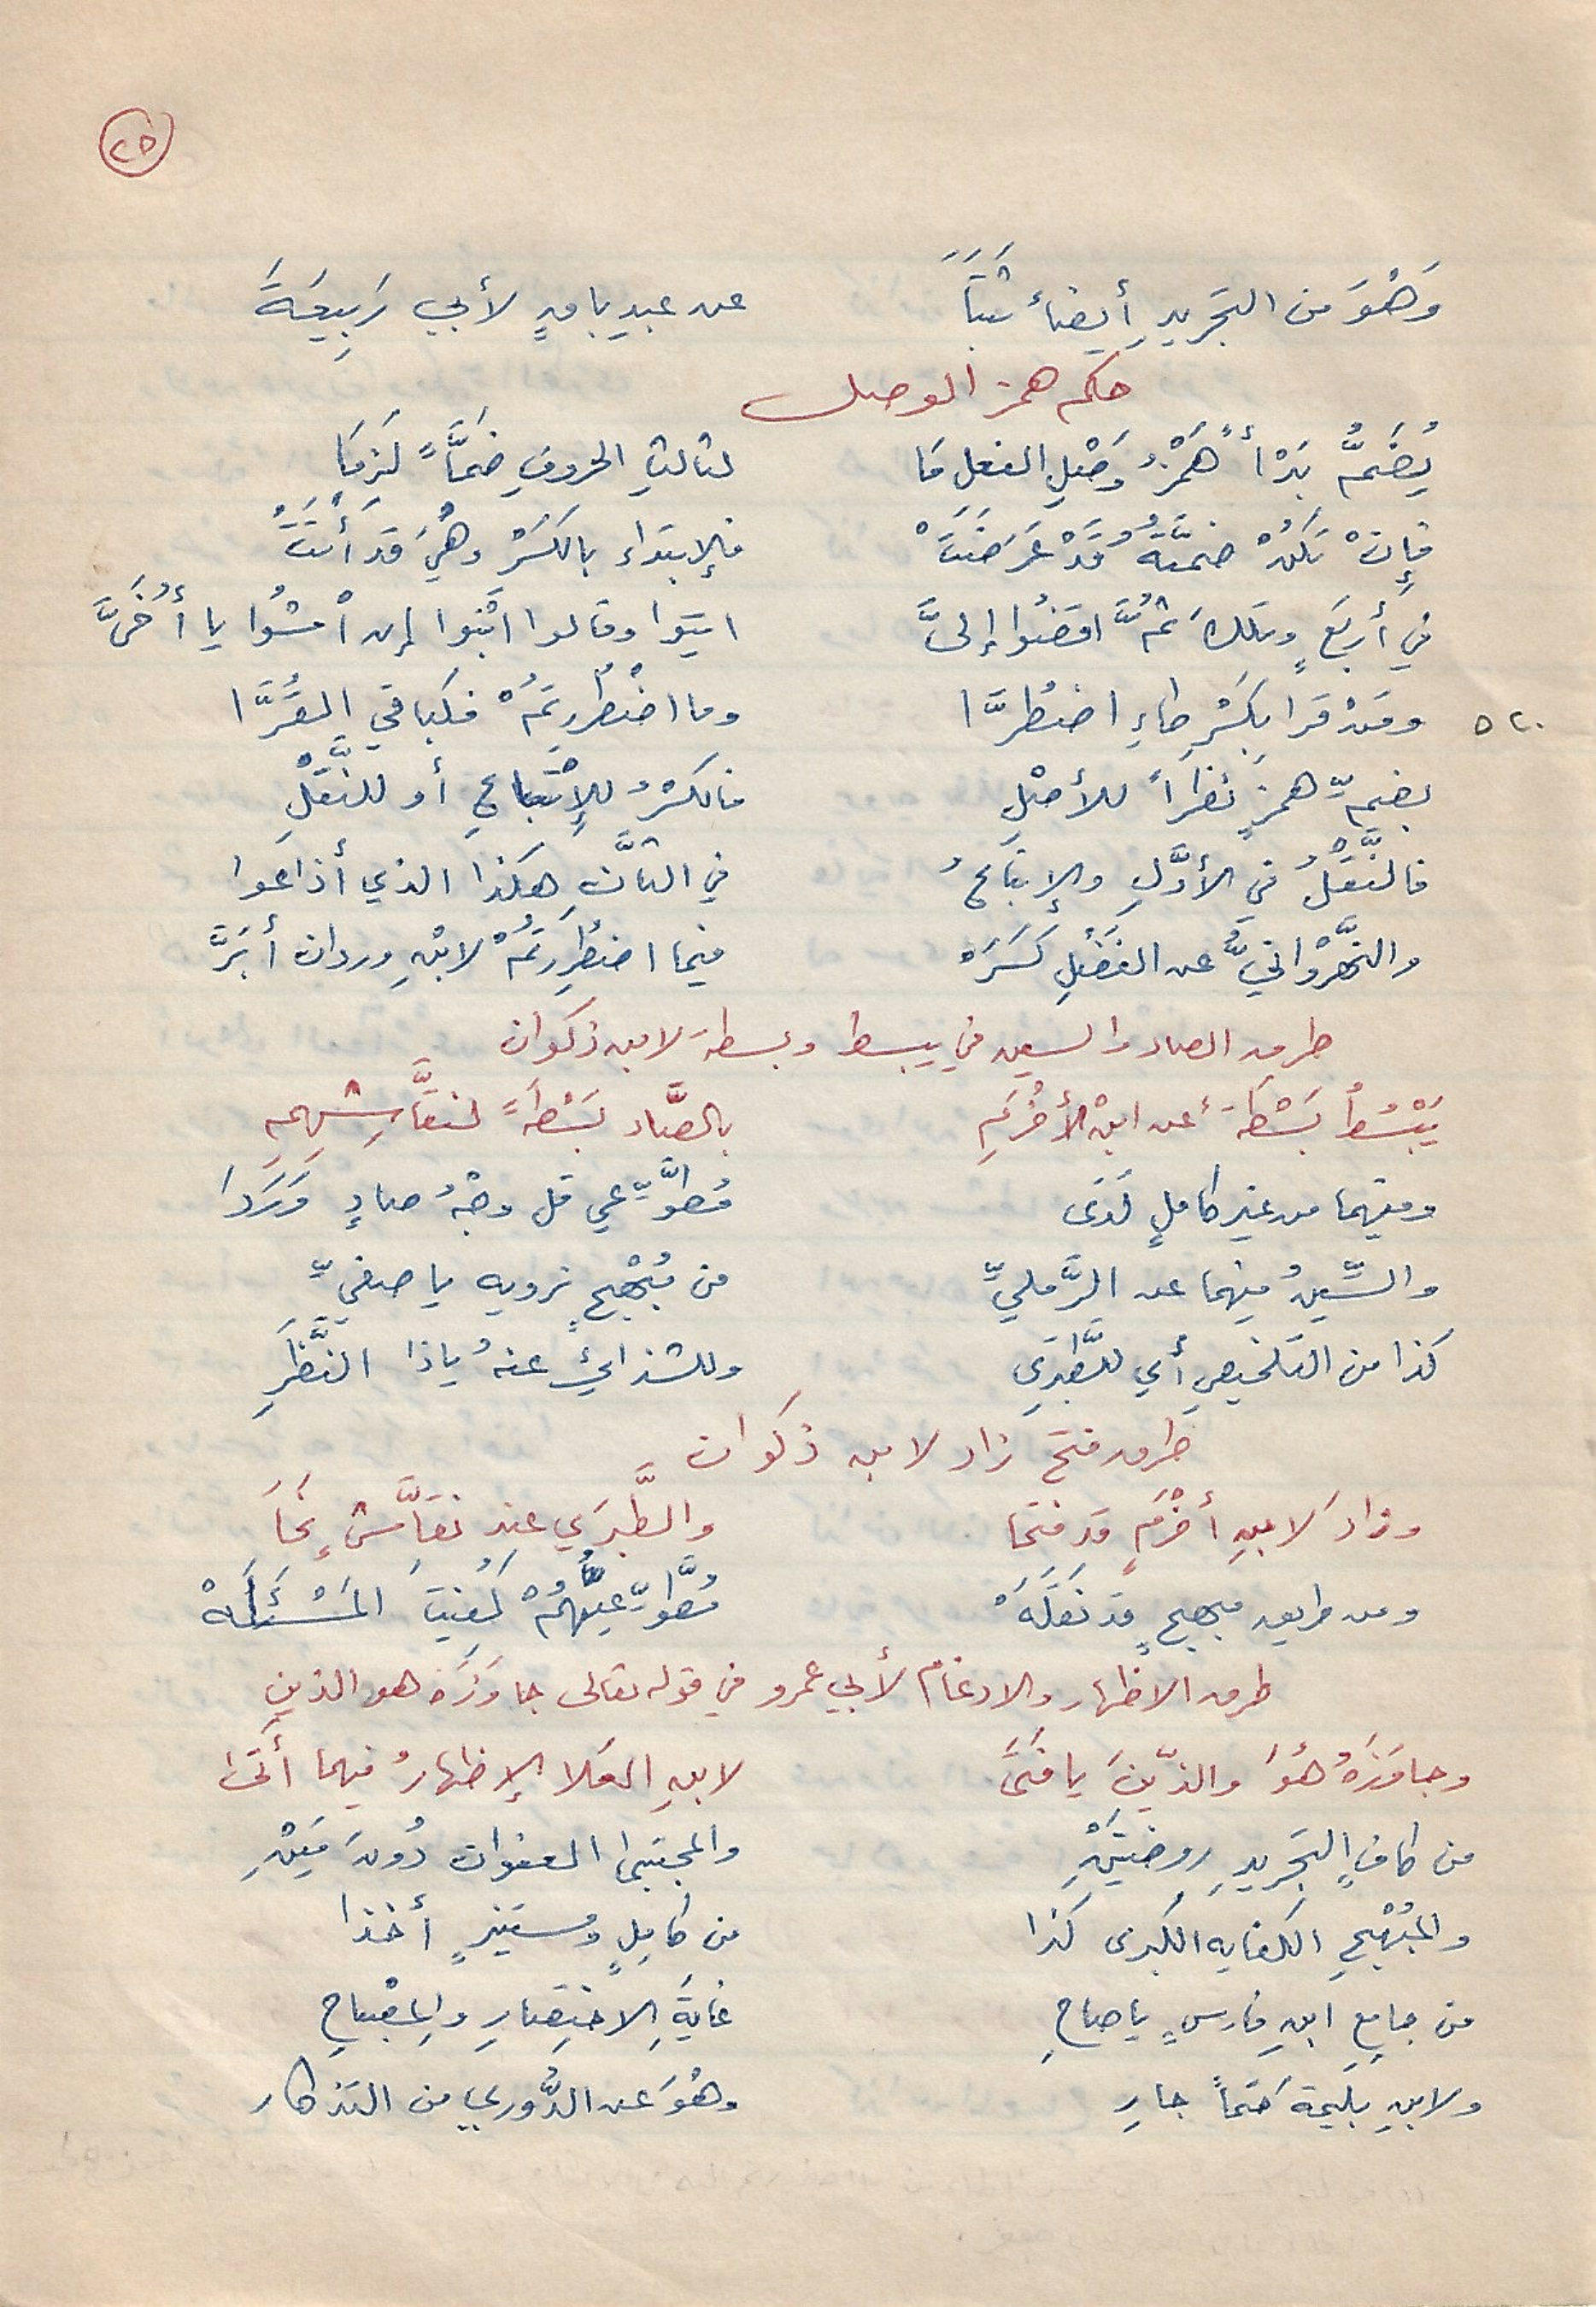 ٢٥
وَهْوَ من التجريدِ أيضاً ثَبَتَا عن عبدِ باقٍ لأبي رَبِيعَةَ
حكم همز الوصل
يُضَمُّ بَدْأً هَمْزُ وَصْلِ الفعل مَا لثالثِ الحروفِ ضَمَّاً لَزِمَا
فإِنْ تَكُنْ ضمَّةُ قَدْ عَرَضَتْ فالابتداء بالكَسْرْ وهْيَ قد أَتَتْ
في أربعٍ وتلك ثُمَّ اقضُوا إلىَّ ايتوا وقالوا ابْنُوا إن امْشُوا يا أُخَىَّ
ومَنْ قرا بكَسْرِ طاءِ اضطُرَّا وما اضْطُرِرتمُ فكباقي القُرَّا ٥٢٠
بضمِّ همزٍ نظراً للأصْلِ فالكسْرُ للإتْباعِ أو للنَّقْلِ
فالنَّقْلُ في الأوَّلِ والإتباعُ في الثانِ هكذا الذي أذاعوا
والنَّهْرُوانيُّ عن الفَضْلِ كَسَرَ فيما اضطُرِرتُمْ لابنِ وردان أَبَرَّ
طرق الصاد والسين في يبسط وبسطة لابن ذكوان
يَبْسُطُ بَسْطَةً عن ابنْ الأخْرَمِ بالصَّاد بَسْطَةً لنقَّاشِهِمِ
وفيهما من غير كاملٍ لَدَى مُطَّوِّعي قل وجْهُ صادٍ وَرَدَا
والسِّينُ فيهما عن الرَّمليِّ من مُبْهِجٍ نرويه يا صفيِّ
كذا من التلخيصِ أي للطَّبَرِي وللشذائي عنهُ ياذا النَّظَرِ
طرق فتح زاد لابن ذكوان
وزاد لابنِ أَخْرَمٍ قد فتحا والطَّبَرَي عن نقَّاشٍ نحَا
ومن طريق مبهجٍ قد نَقَلَهْ مُطَّوِّعِيُّهُمْ كُفِيتَ المَسْئَلَهْ
طرق الاظهار والادغام لأبي عمرو في قوله تعالى جاوزه هو الذين
وجاوَزَهُ هُوَ والذِينَ يا فتَى لابنِ العَلا الإظهارُ فيهما أَتَى
من كافٍ التجريدِ روضتَيْنِ والمجتبى العنوان دُونَ مَيْنِ
والمُبْهِجِ الكفايه الكبرى كذا من كامِلٍ ومُستنيرٍ أُخذا
من جامعِ ابنِ فارسٍ يا صاحِ غايةِ الاختِصارِ والمِصْباحِ
ولابنِ بلّيمة حَتماً جارِ وهُوَ عن الدُّوري من التذكار